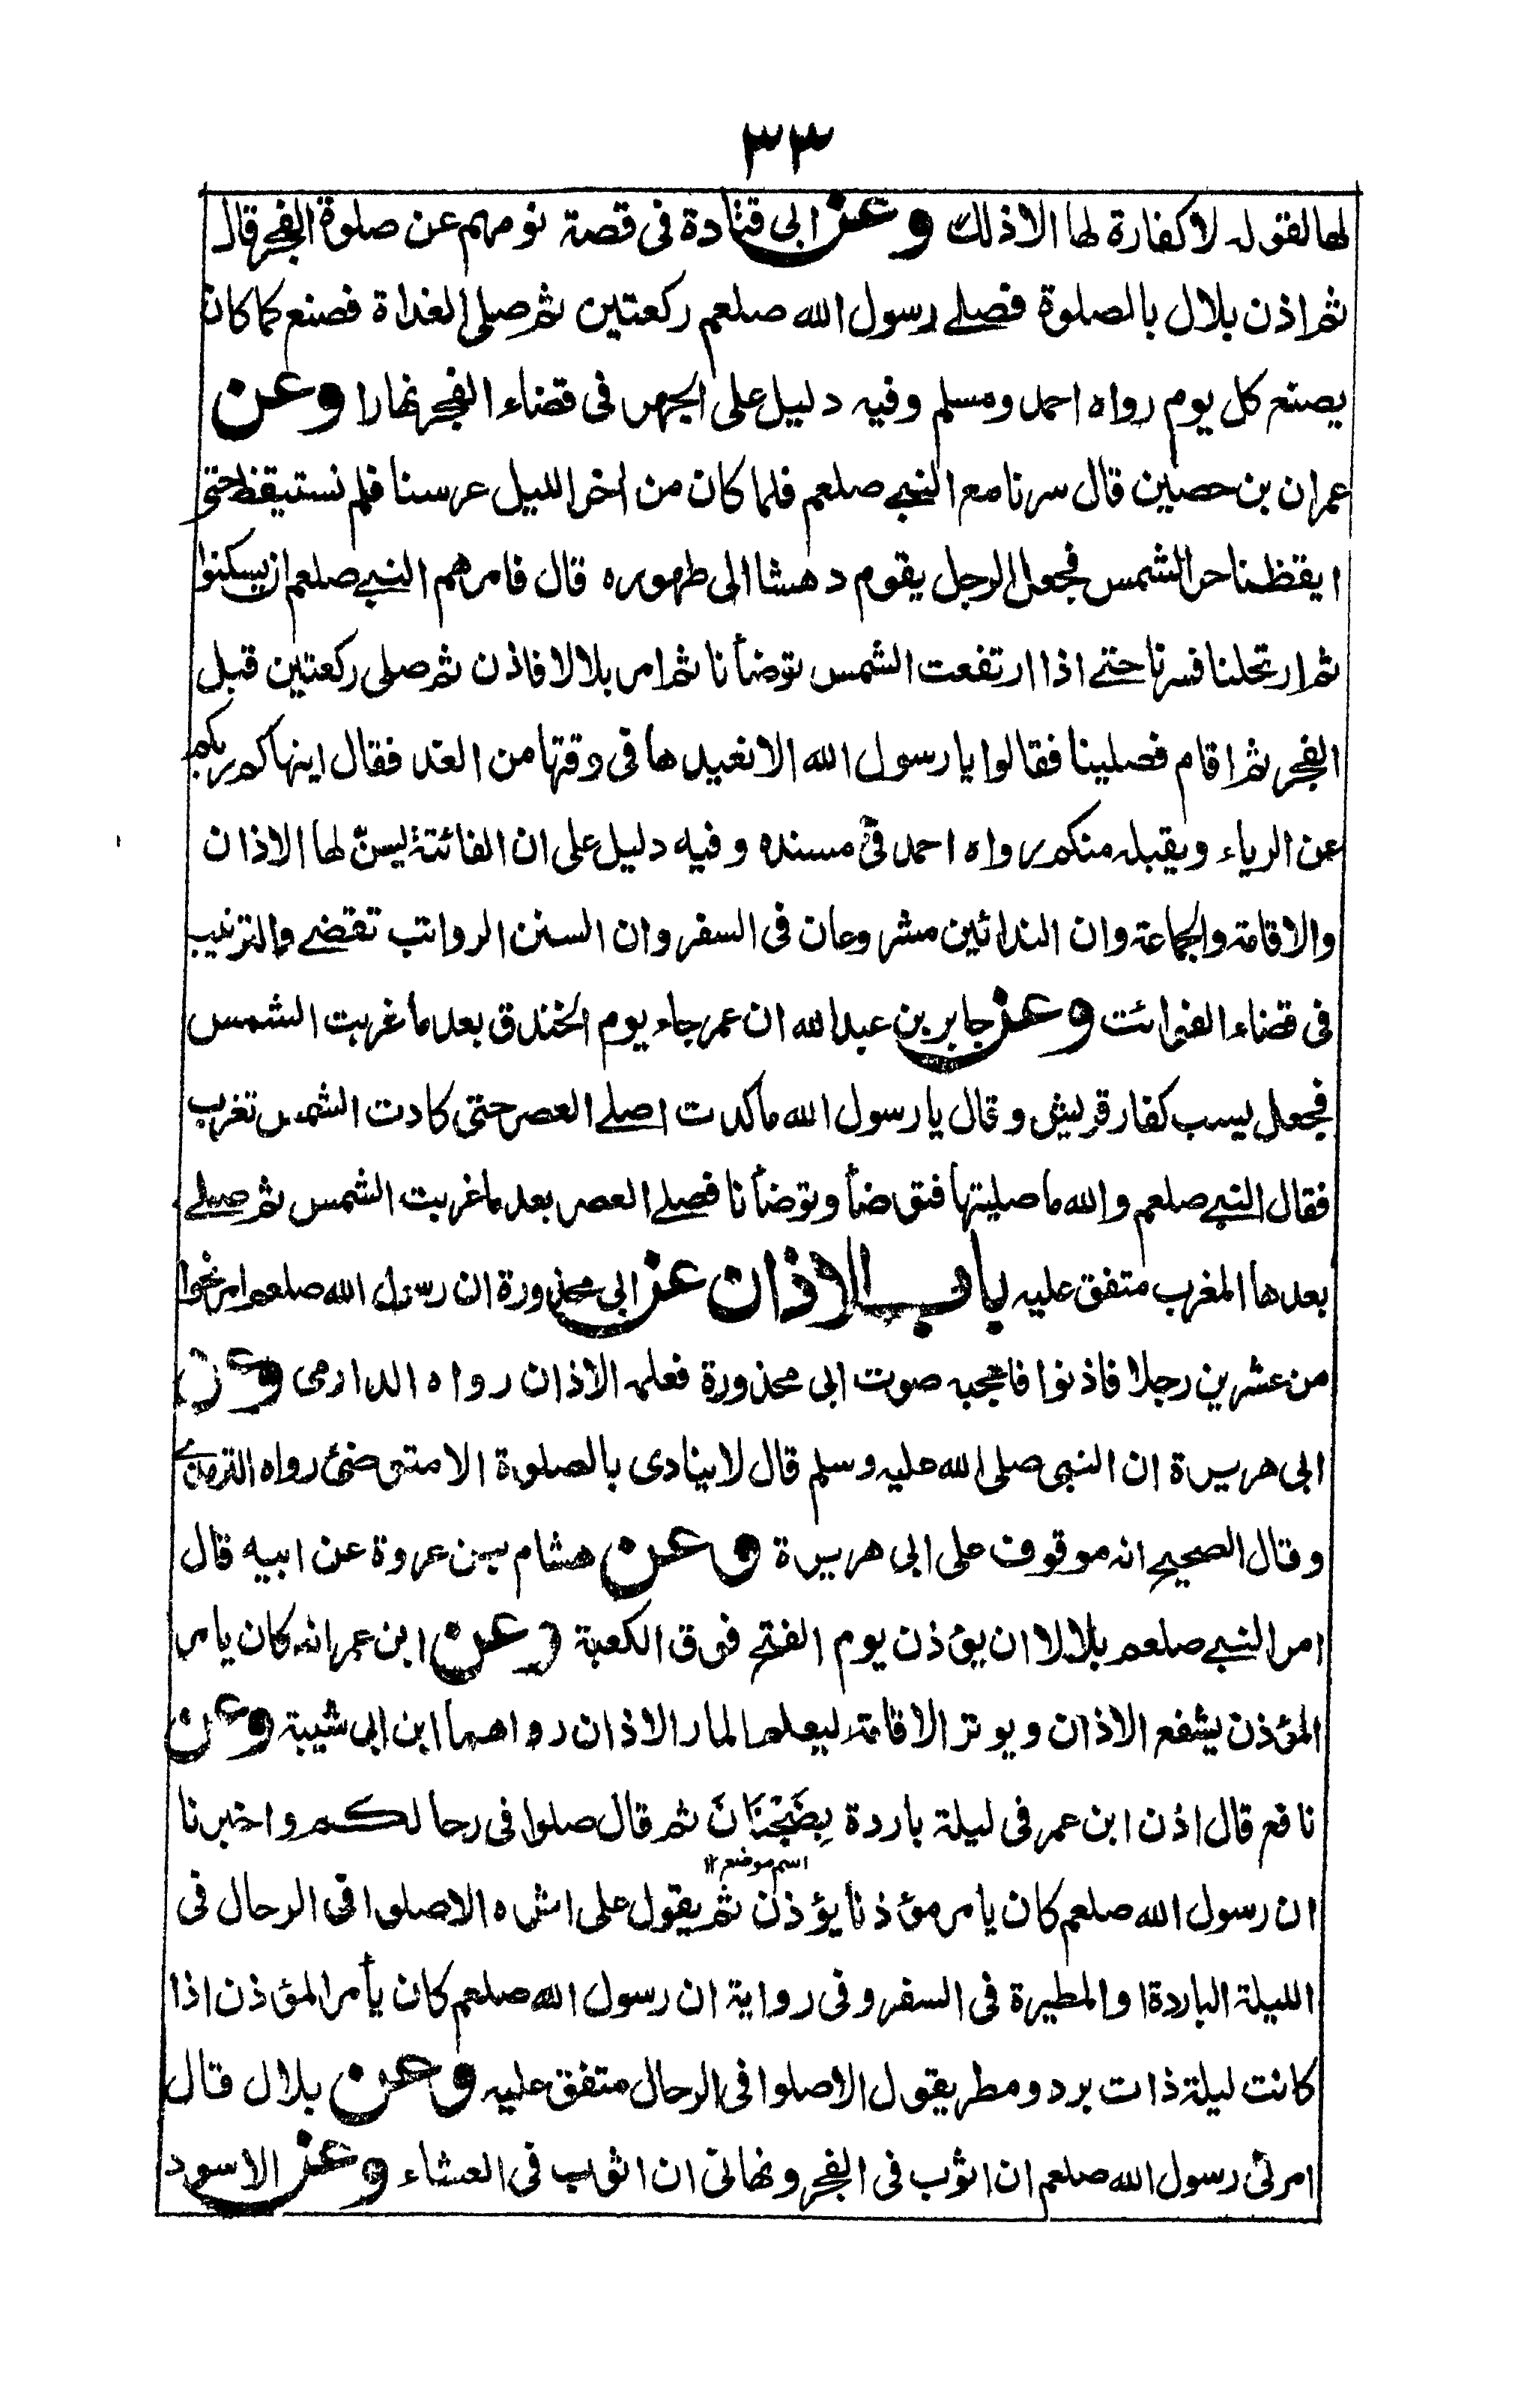 ٣٣
لها لقوله لا كفارة لها الا ذلك وعن ابي قتادة فى قصة نومهم عن صلوة الفجر قال
ثم اذن بلال بالصلوة فصلے رسول الله صلعم ركعتين ثم صلى الغداة فصنع كما كان
يصنع كل يوم رواه احمد ومسلم وفيه دليل على الجهر فى قضاء الفجر نهارا وعن
عمران بن حصين قال سرنا مع النبے صلعم فلما كان من اخر الليل عرسنا فلم نستيقظ حتى
ايقظنا حر الشمس فجعل الرجل يقوم دهشا الى طهوره قال فامرهم النبے صلعم ان يسكنوا
ثم ارتحلنا فسرنا حتے اذا ارتفعت الشمس توضأنا ثم امر بلالا فاذن ثم صلى ركعتين قبل
الفجر ثم اقام فصلينا فقالوا يا رسول الله الا نعيدها فى وقتها من الغد فقال اينهاكم ربكم
عن الرياء ويقبله منكم رواه احمد فى مسنده وفيه دليل على ان الفائتة يسنّ لها الاذان
والاقامة والجماعة وان الندائين مشروعان فى السفر وان السنن الرواتب تقضے والترتيب
فى قضاء الفوائت وعن جابر بن عبد الله ان عمر جاء يوم الخندق بعد ما غربت الشمس
فجعل يسب كفار قريش وقال يا رسول الله ما كدت اصلے العصر حتى كادت الشمس تغرب
فقال النبے صلعم والله ما صليتها فتوضأ وتوضأنا فصلے العصر بعد ما غربت الشمس ثم صلے
بعدها المغرب متفق عليه باب الاذان عن ابى محذورة ان رسول الله صلعم امر نحوا
من عشرين رجلا فاذنوا فاعجبه صوت ابى محذورة فعلمه الاذان رواه الدارمى وعن
ابى هريرة ان النبى صلى الله عليه وسلم قال لا ينادى بالصلوة الا متوضئ رواه الترمذے
وقال الصحيح انه موقوف على ابى هريرة وعن هشام بن عروة عن ابيه قال
امر النبے صلعم بلالا ان يؤذن يوم الفتح فوق الكعبة وعن ابن عمر انه كان يامر
المؤذن يشفع الاذان ويوتر الاقامة ليعلم المار الاذان رواهما ابن ابى شيبة وعن
نافع قال اذن ابن عمر فى ليلة باردة بِضَجْنَانَ ثم قال صلوا فى رحالكم واخبرنا
اسم موضع ١٢
ان رسول الله صلعم كان يامر مؤذنا يؤذن ثم يقول على اثره الا صلوا فى الرحال فى
الليلة الباردة او المطيرة فى السفر وفى رواية ان رسول الله صلعم كان يأمر المؤذن اذا
كانت ليلة ذات برد ومطر يقول الا صلوا فى الرحال متفق عليه وعن بلال قال
امرنى رسول الله صلعم ان اثوب فى الفجر ونهانى ان اثوب فى العشاء وعن الاسود